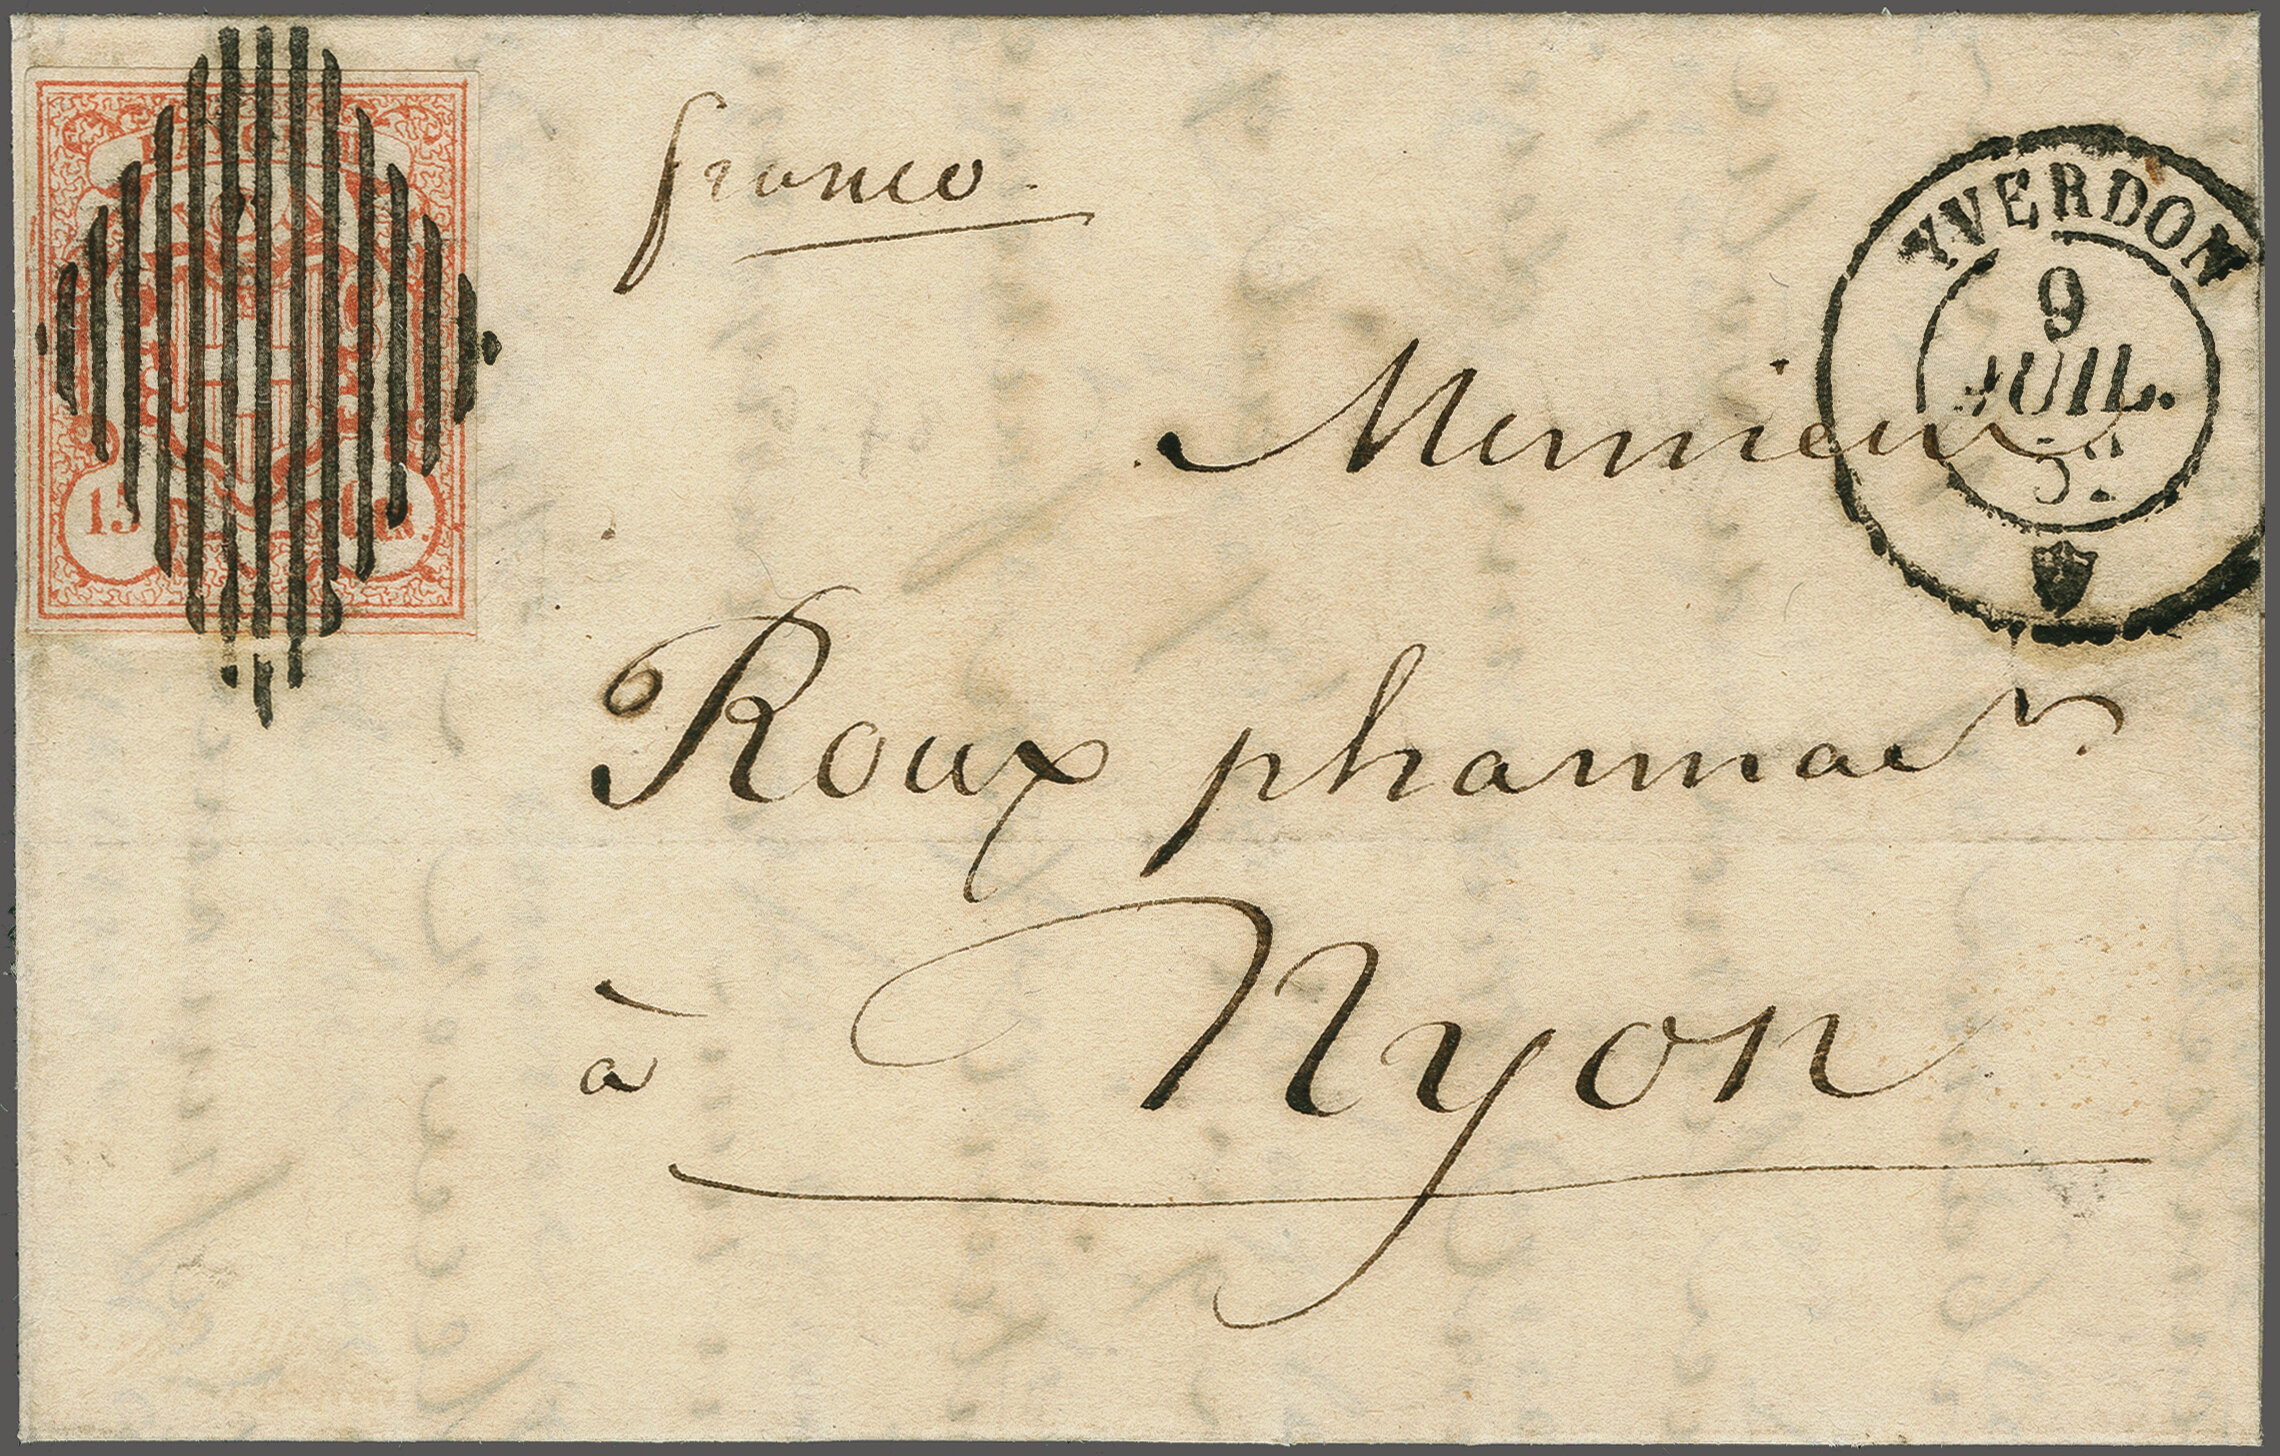 franco.
YVERDON
9
JUIL.
52
15 Cts.
Monsieur
Roux pharmacn.
à Nyon